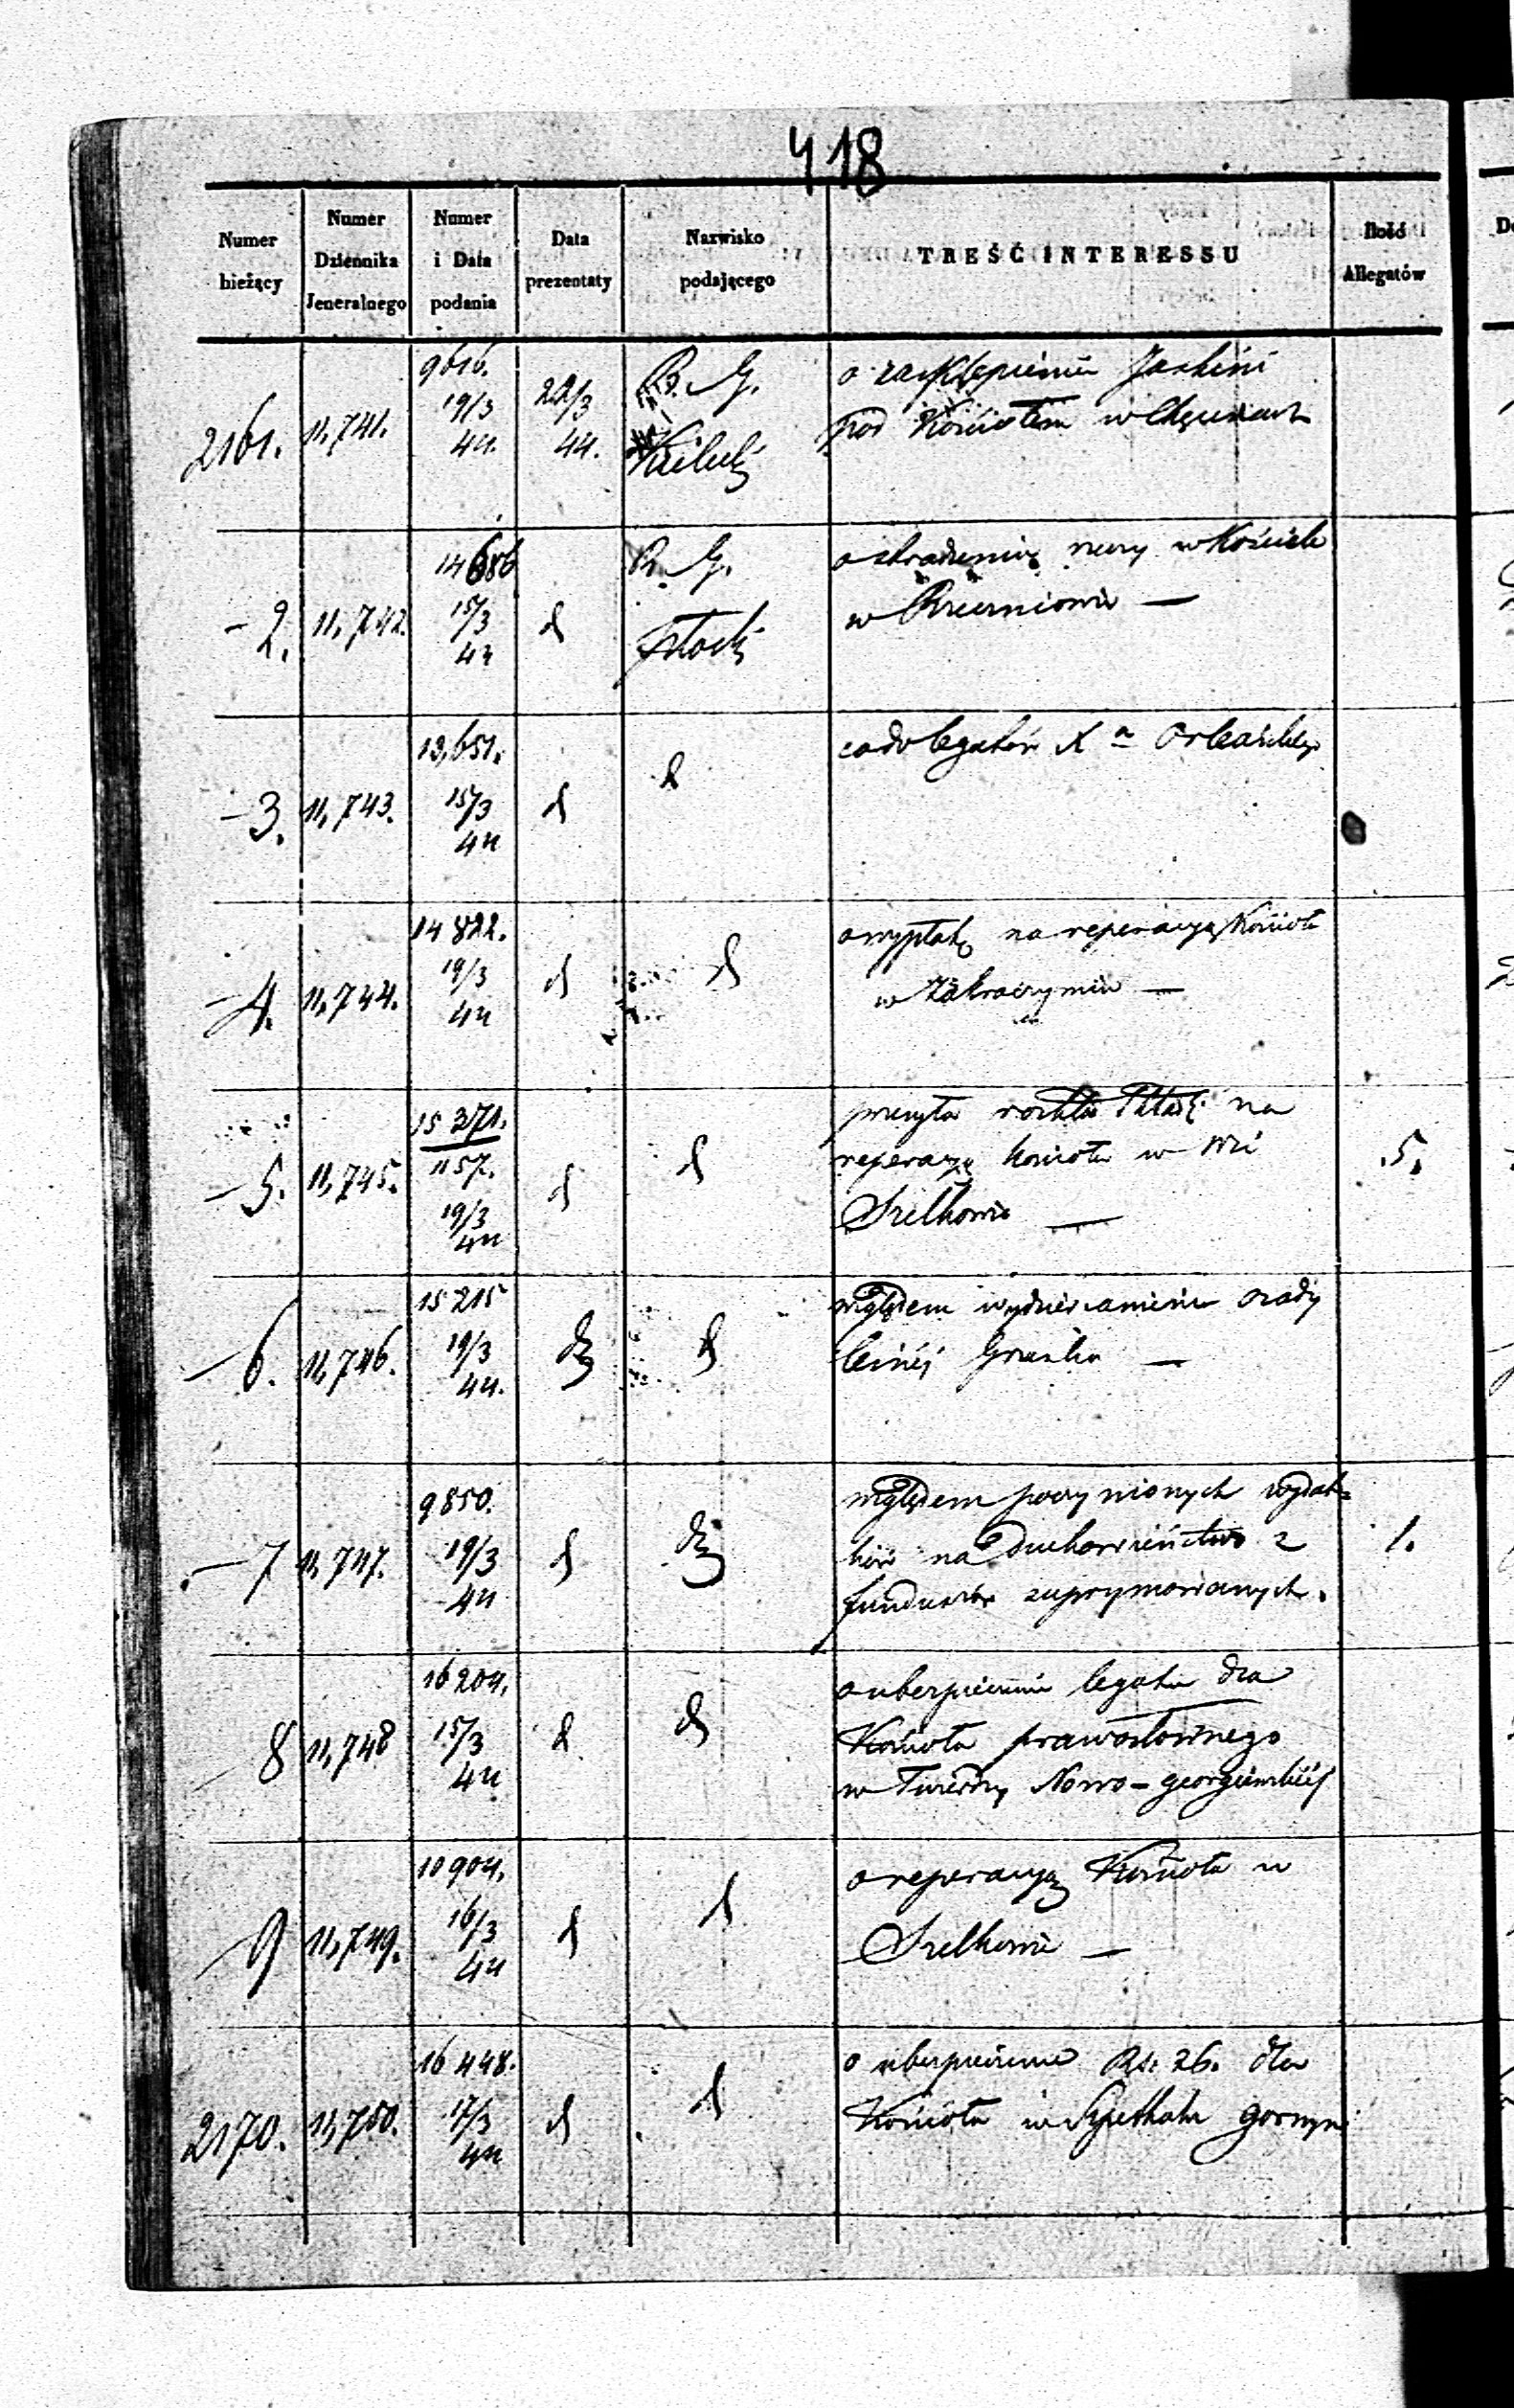 418
Numer bieżący
Numer Dziennika Jeneralnego
Numer i Data podania
Data prezentaty
Nazwisko podającego
TREŚĆ INTERESSU
Ilość Allegatów
2161. 11,741. 9616. 19/3 44. 22/3 44. R. G. Kielecki o zasklepieniu Jaskini
pod Kościołem w Chęcinach
-2. 11,742. 14686 15/3 44 R. G. Płocki o skradzenie w Kościele
w
-3. 11,743. 13,651. 15/3 44 co do legatów X a
-4. 11,744. 14822. 19/3 44 o wypłatę na reperacyą Kościoła
w Zakroczymiu —
-5. 11,745. 15271. 1157. 19/3 44 na .5.
reperacyę kościoła w Wsi
Szelkowie —
-6. 11,746. 15215 19/3 44. względem wydzierżawienia Osady
leśnéj —
-7 11,747. 9850. 19/3 44 względem poczynionych wydat- 1.
ków na Duchowieństwo z
funduszów suprymowanych.
8 11,748 16204. 15/3 44 o ubezpieczenie legatu dla
Kościoła prawosławnego
w Twierdzy Nowo-georgiewskiéj
9 11,749. 10904. 16/3 44 o reperacyą Kościoła w
Szelkowie —
2170. 11,750. 16448. 17/3 44 o ubezpieczenie Rs. 26. dla
Kościoła w Szpetkalu gornym